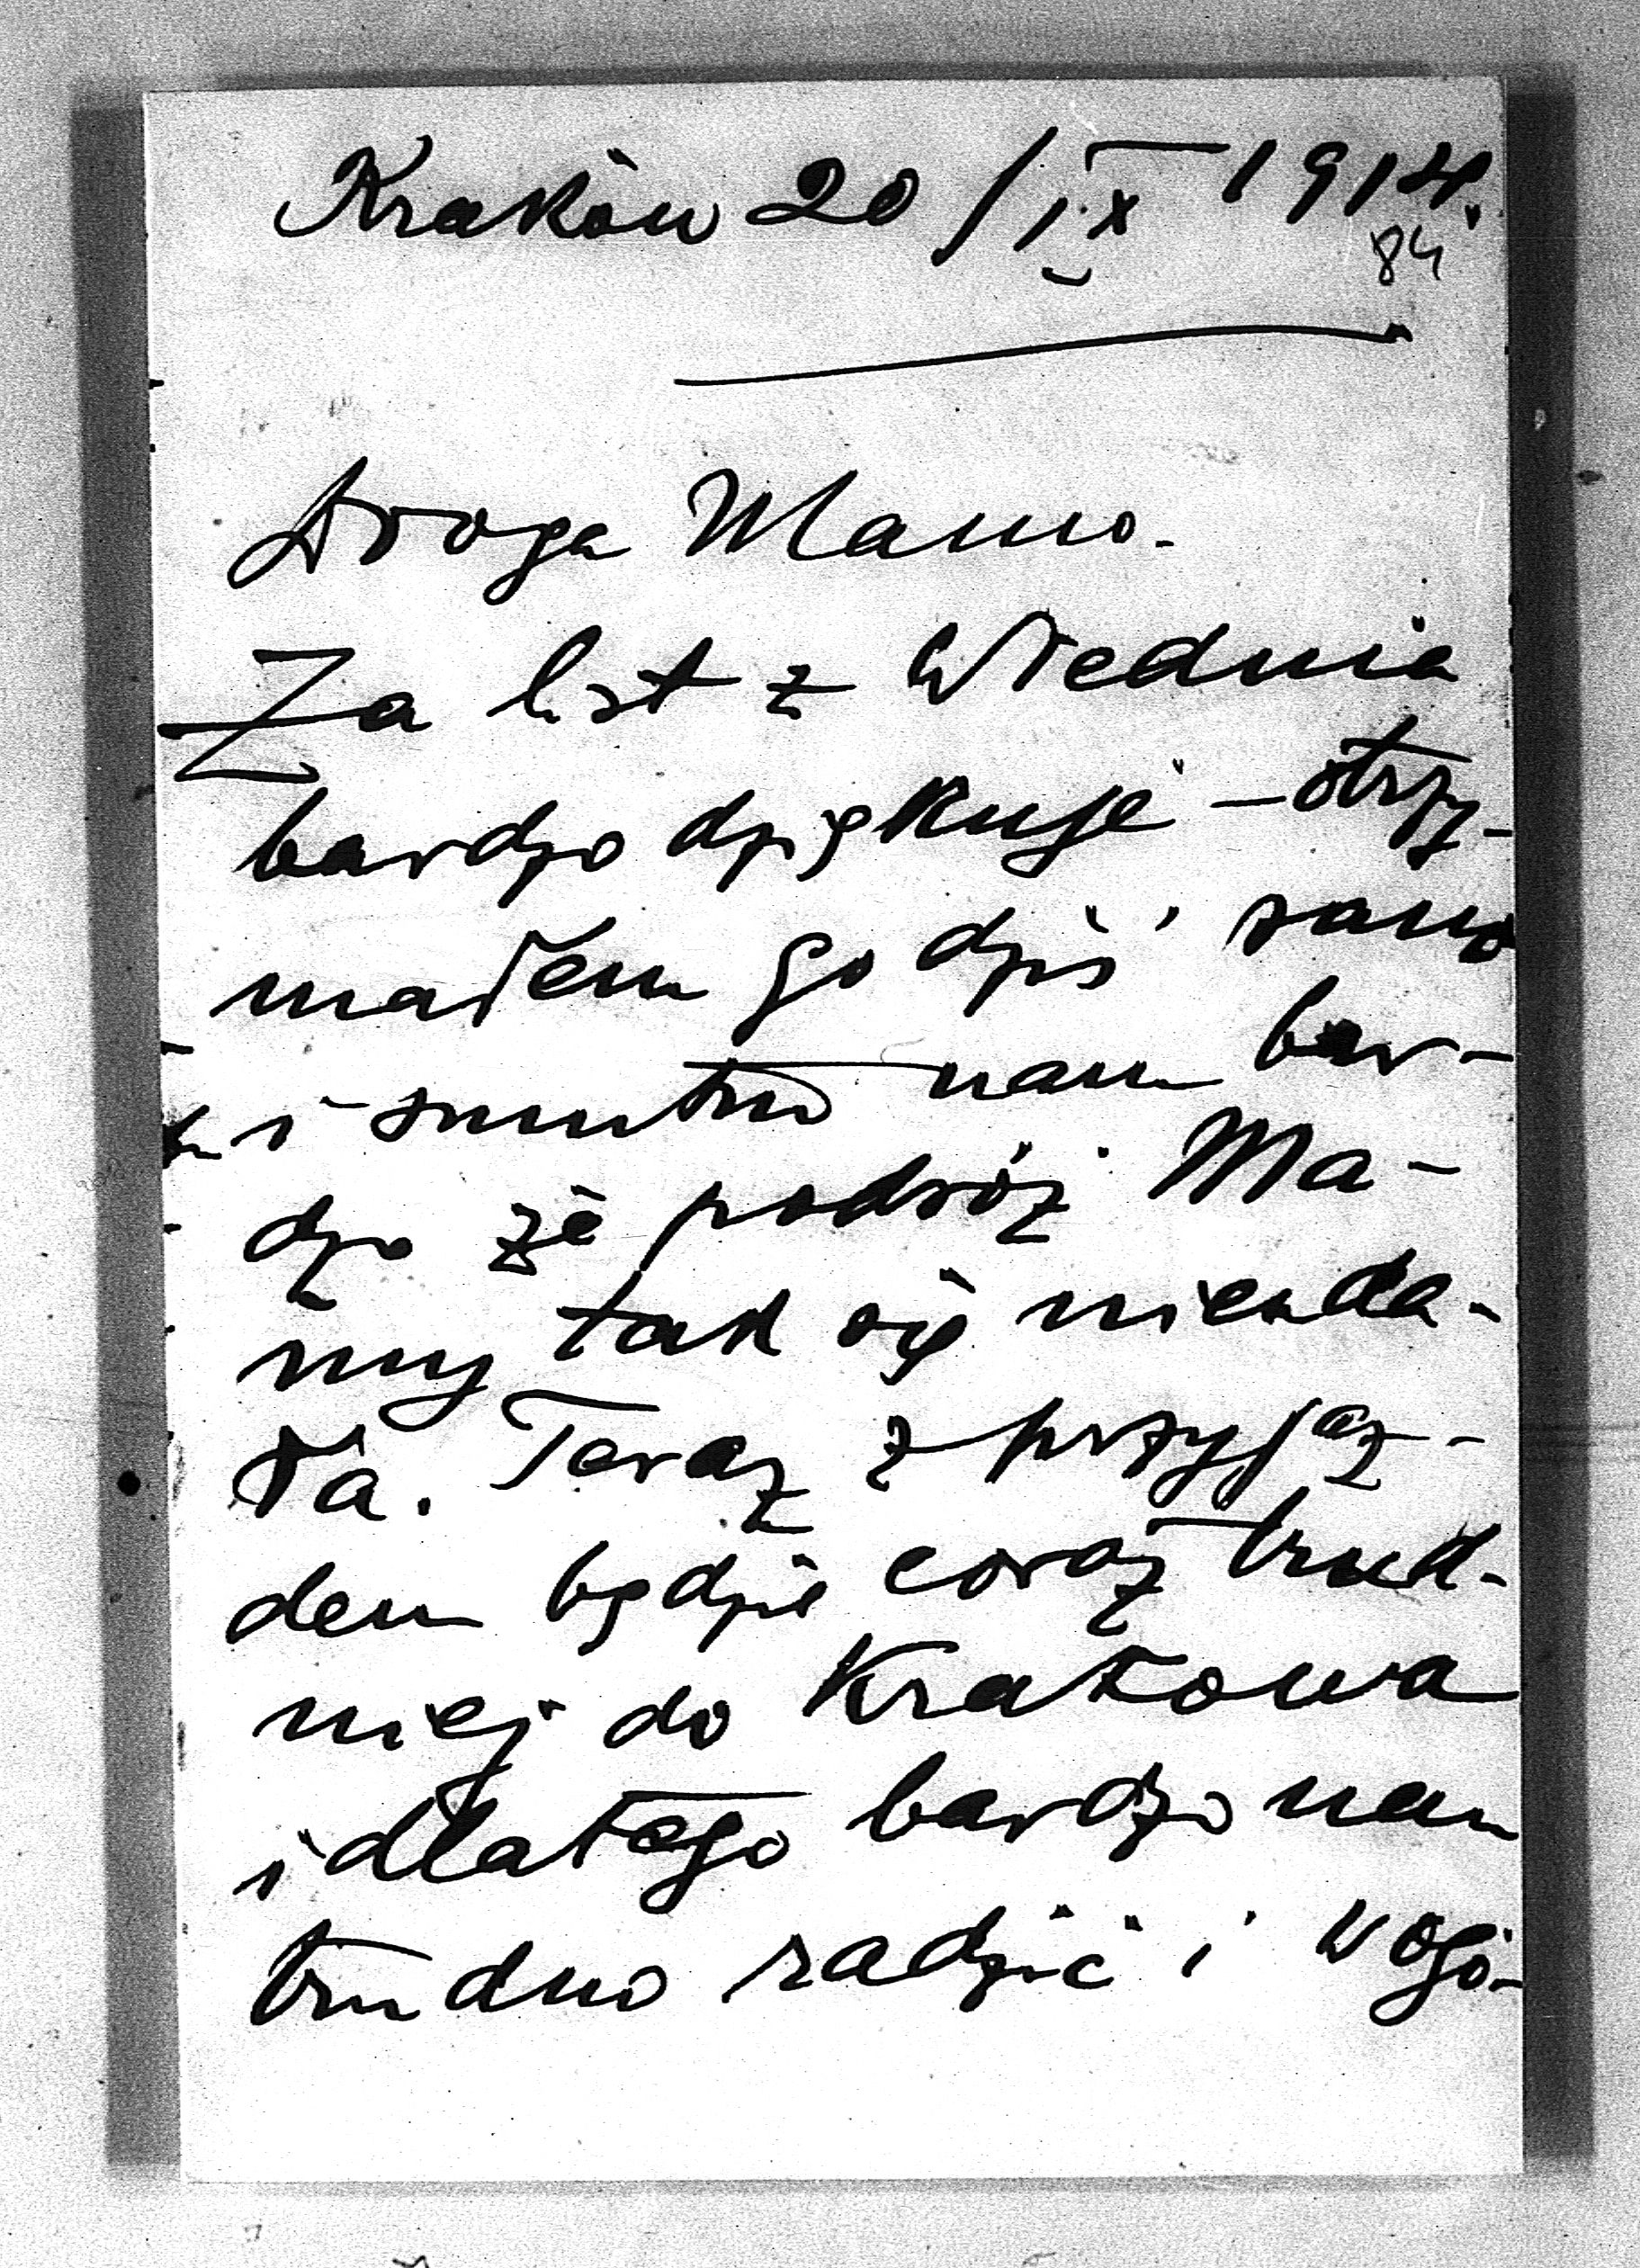 Kraków 20/IX 1914.
84
Droga Mamo.
Za list z Wiednia
bardzo dziękuję – otrzy-
małem go dziś rano
i smutno nam bar-
dzo że podróż Ma-
my tak się nieuda-
ła. Teraz z przyjaz-
dem będzie coraz trud-
niej do Krakowa
i dlatego bardzo nam
trudno radzić i wogó-